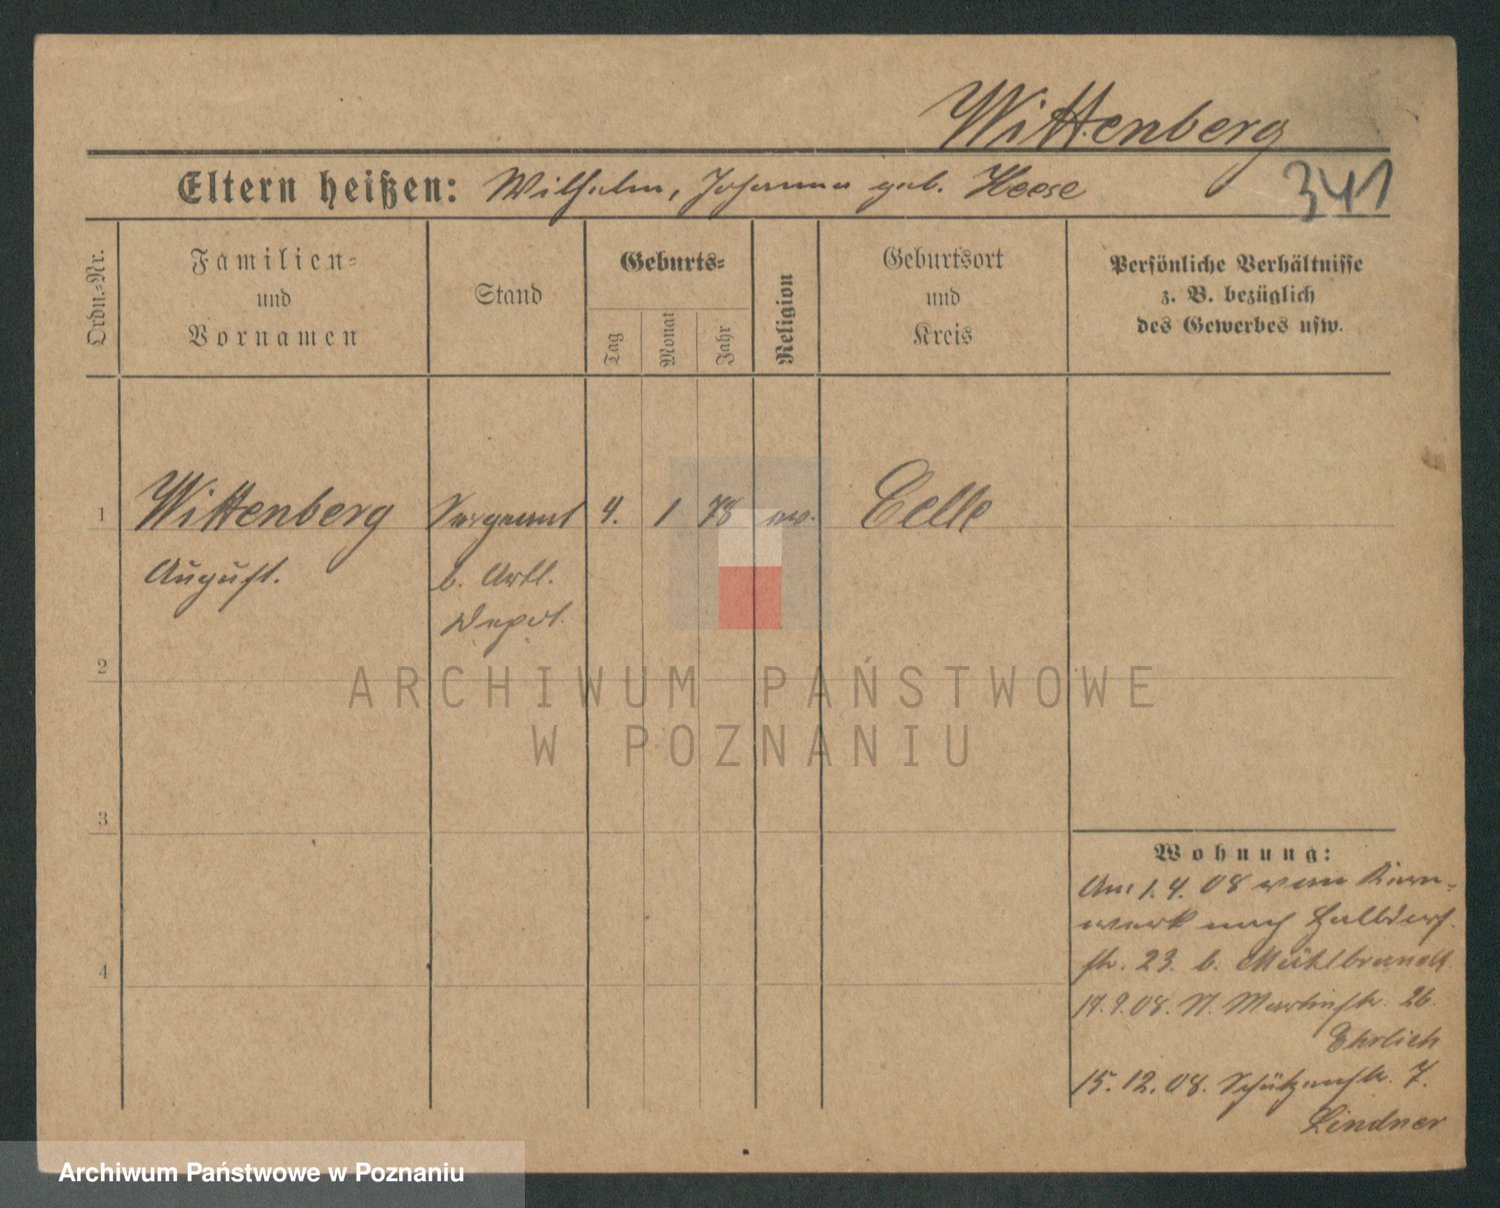 Wittenberg
Eltern heißen: Wilhelm, Johanna geb. Heese
341
Ordn.-Nr.
Familien-
und
Vornamen
Stand
Geburts-
Tag
Monat
Jahr
Religion
Geburtsort
und
Kreis
Persönliche Verhältnisse
z. B. bezüglich
des Gewerbes usw.
1 Wittenberg Sergeant 4. 1 78 ev. Celle
August. b. Artl.
Depot.
2
3
4
ARCHIWUM PAŃSTWOWE
W POZNANIU
Wohnung:
Am 1.4.08 vom
werk nach Halldorf
str. 23. b. Mühlbrandt
17.9.08. St. Martinstr. 26.
Ehrlich
15.12.08. Schützenstr. 7.
Lindner
Archiwum Państwowe w Poznaniu